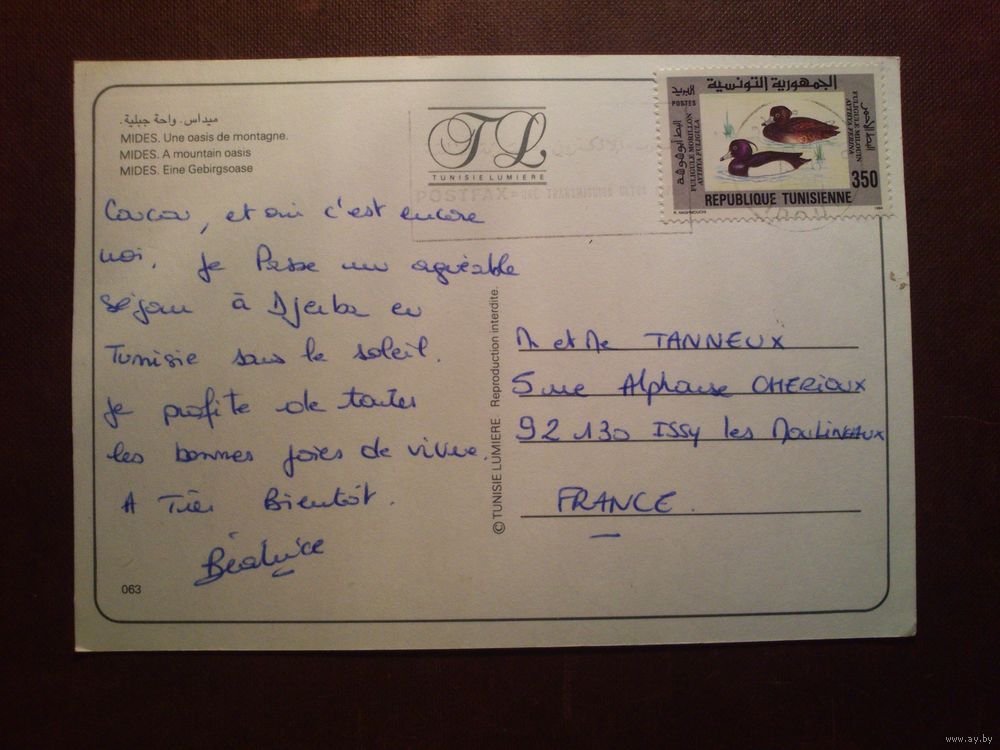 ميداس. واحة جبلية.
MIDES. Une oasis de montagne.
MIDES. A mountain oasis
MIDES. Eine Gebirgsoase
TL
TUNISIE LUMIERE
POSTFAX
الجمهورية التونسية
البريد
POSTES
FULIGULE MORILLON
AYTHYA FULIGULA
FULIGULE MILOUIN
AYTHYA FERINA
350
REPUBLIQUE TUNISIENNE
Coucou, et oui c'est encore
moi. Je Passe un agréable
séjour à Djerba en
Tunisie sous le soleil.
Je profite de toutes
les bonnes joies de vivre.
A Très Bientôt.
Béatrice
063
© TUNISIE LUMIERE. Reproduction interdite.
M et Me TANNEUX
5 rue Alphonse CHERIOUX
92 130 ISSY les MOULINEAUX
FRANCE.
www.ay.by